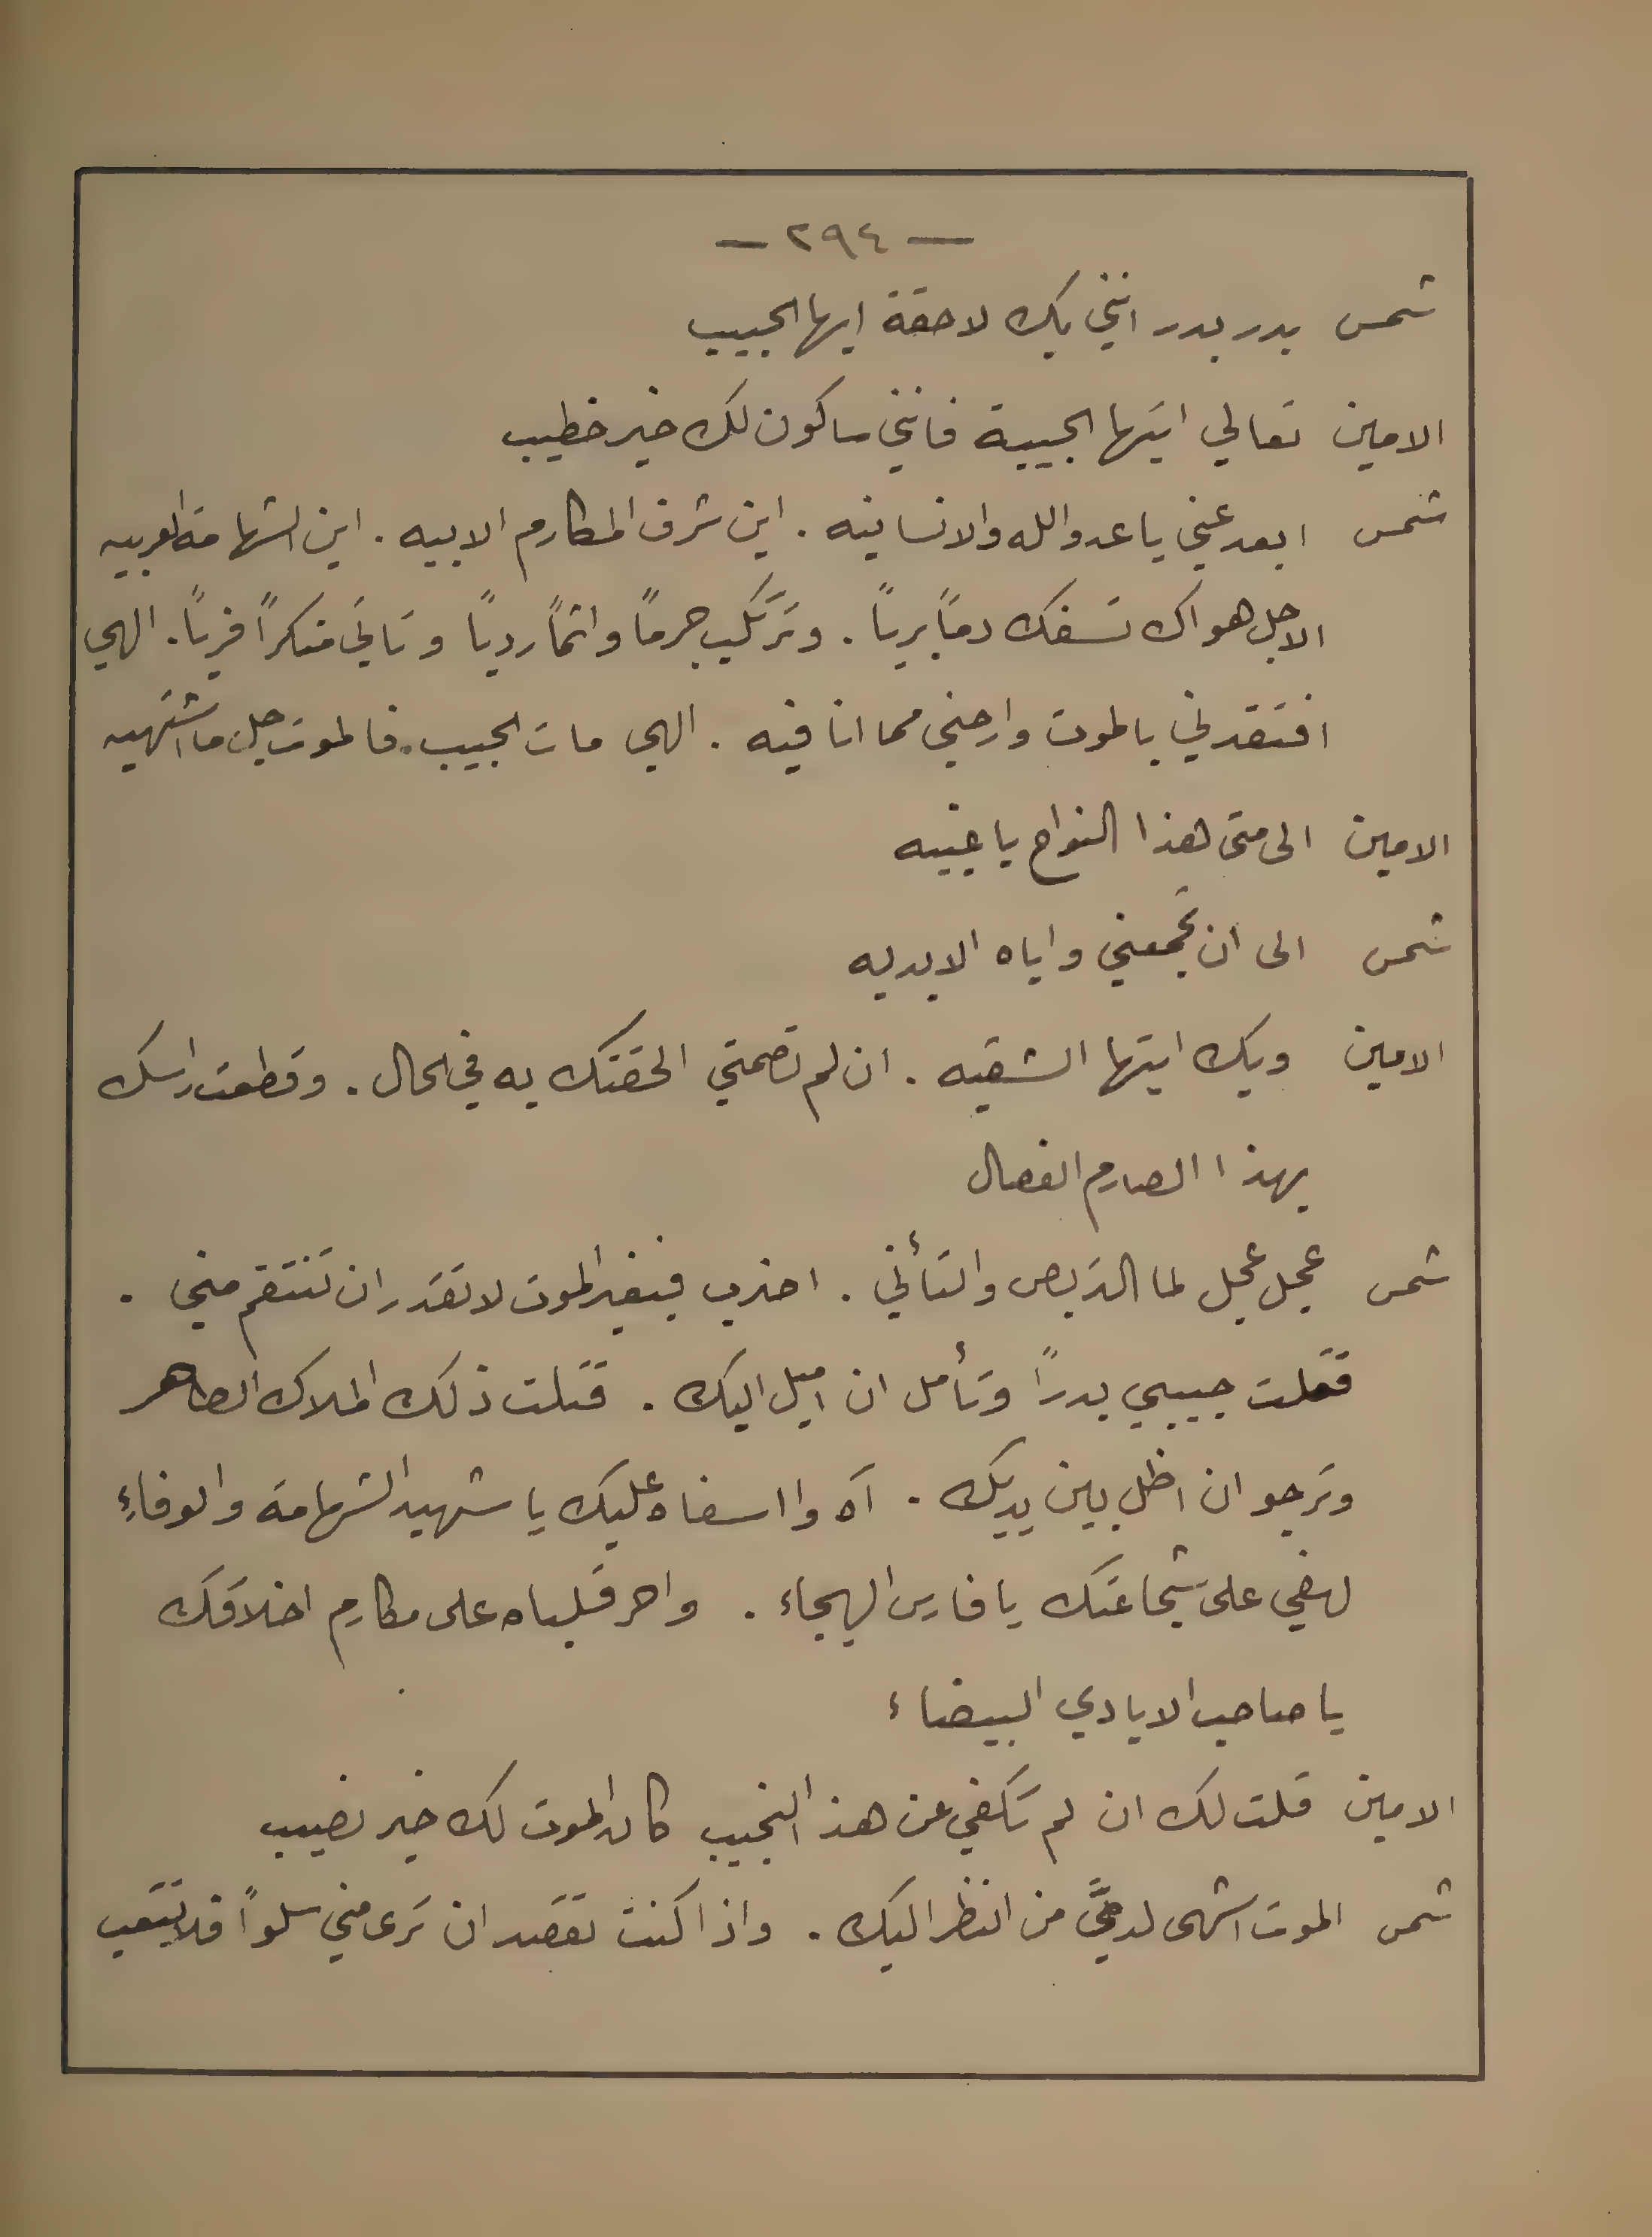 — ٢٩٤ —
شمس بدر بدر انني بك لاحقة ايها الحبيب
الامين تعالي ايتها الحبيبة فانني ساكون لك خير خطيب
شمس ابعد عني يا عدو الله والانسانيه . اين شرف المكارم الابيه . اين الشهامة العربيه
الاجل هواك تسفك دمًا بريًا . وترتكب جرمًا واثمًا رديًا وتاتي منكرًا فريًا . الهي
افتقدني بالموت وارحني مما انا فيه . الهي مات الحبيب . فالموت جل ما اشتهيه
الامين الى متى هذا النواح يا غبيه
شمس الى ان تجمعني واياه الابديه
الامين ويك ايتها الشقيه . ان لم تصمتي الحقتك به في الحال . وقطعت راسك
بهذا الصارم الفصال
شمس عجل عجل لما التربص والتأني . اضرب فبغير الموت لا تقدر ان تنتقم مني .
قتلت حبيبي بدرًا وتأمل ان اميل اليك . قتلت ذلك الملاك الطاهر
وترجو ان اظل بين يديك . آه وا اسفاه عليك يا شهيد الشهامة والوفاءِ
لهفي على شجاعتك يا فارس الهيجاء . واحر قلباه على مكارم اخلاقك
يا صاحب الايادي البيضاء
الامين قلت لك ان لم تكفي عن هذا النحيب كان الموت لك خير نصيب
شمس الموت اشهى لديَّ من النظر اليك . واذا كنت تقصد ان ترى مني سلواً فلا تتعب